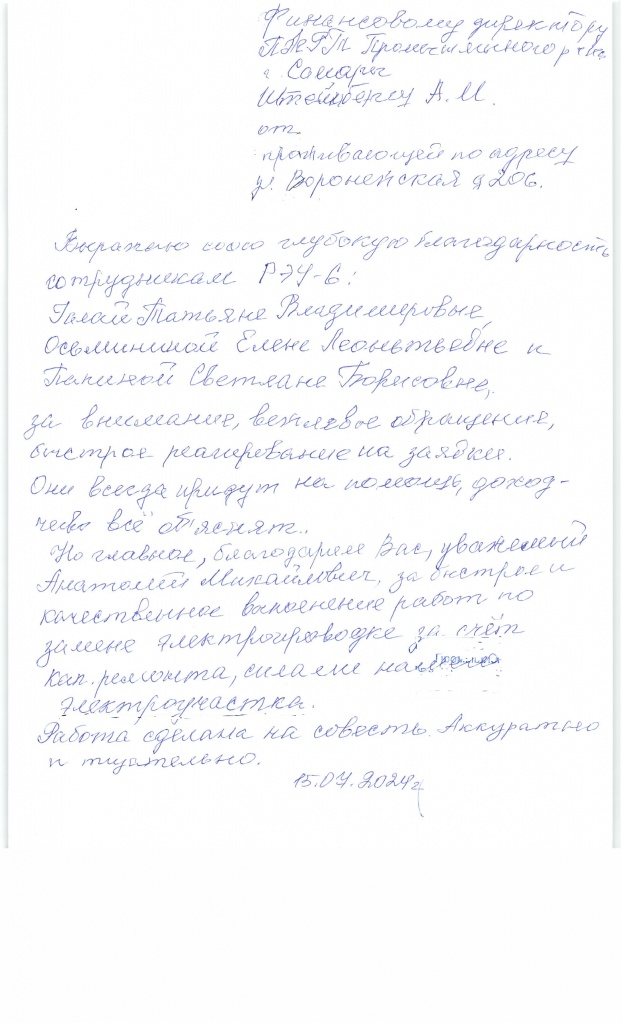 Финансовому директору
ПЖРТ Промышленного р-на
г. Самары
Штейнбергу А.М.
от
проживающей по адресу
ул. Воронежская д 206.
Выражаю свою глубокую благодарность
сотрудникам РЭУ-6:
Галай Татьяне Владимировне,
Осьмининой Елене Леонтьевне и
Папиной Светлане Борисовне,
за внимание, вежливое обращения,
быстрое реагирование на заявки.
Они всегда придут на помощь, доход-
чево всё об'яснят..
Но главное, благодарим Вас, уважаемый
Анатолий Михайлович, за быстрое и
качественное выполнение работ по
замене электропроводке за счёт
кап. ремонта, силами
электроучастка.
Работа сделана на совесть. Аккуратно
и тщательно.
15.07.2024г